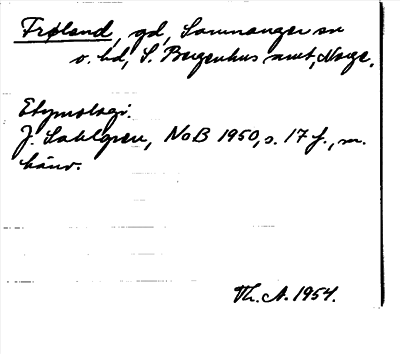 Frøland, gd, Samnanger sn
o. hd, S. Bergenhus amt, Norge.
Etymologi.
J. Sahlgren, NoB 1950, s. 17 f., m.
hänv.
Th. A. 1954.